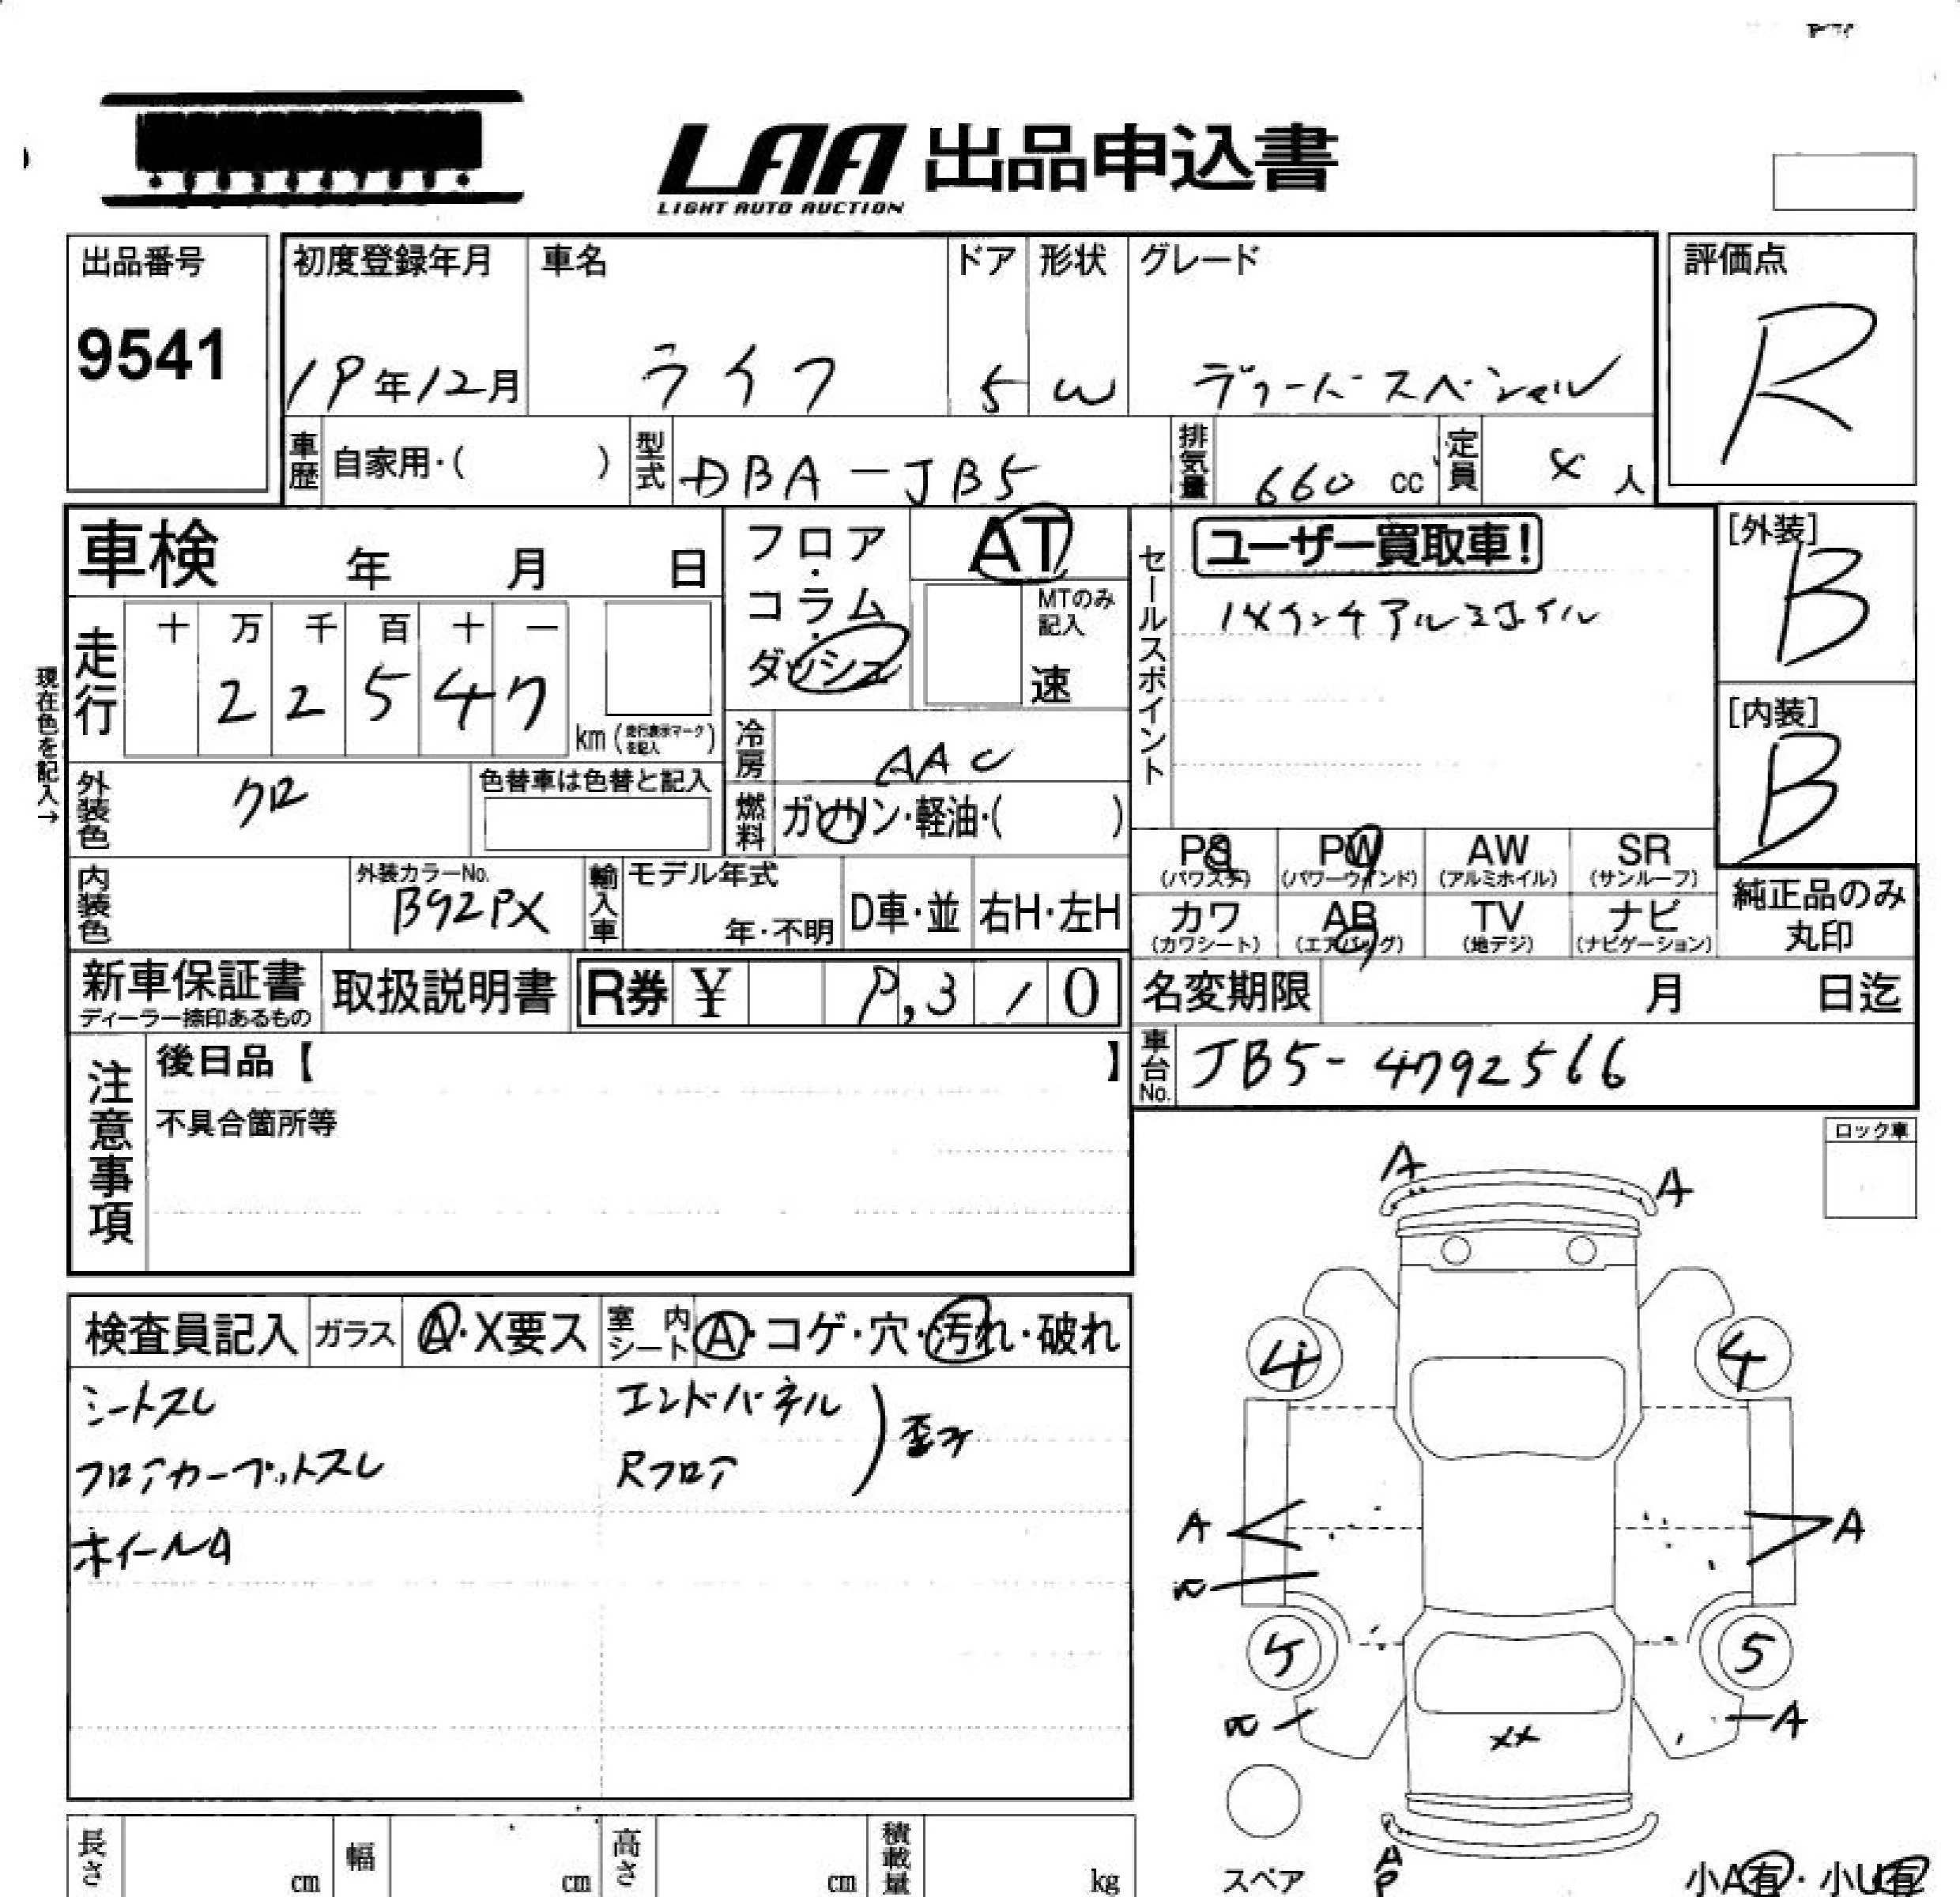 LAA 出品申込書
LIGHT AUTO AUCTION
出品番号
9541
初度登録年月
19年12月
車名
ライフ
ドア
5
形状
W
グレード
ディーバ スペシャル
評価点
R
車歴
自家用・( )
型式
DBA-JB5
排気量
660 cc
定員
4人
車検 年 月 日
フロア・コラム・ダッシュ
AT
MTのみ記入
速
セールスポイント
ユーザー買取車!
14インチアルミホイル
[外装]
B
[内装]
B
現在色を記入→
走行
十 万 千 百 十 一
2 2 5 4 7
km(走行表示マークを記入)
冷房
AAC
燃料
ガソリン・軽油・( )
外装色
クロ
色替車は色替と記入
内装色
外装カラーNo.
B92PX
輸入車
モデル年式
年・不明
D車・並
右H・左H
PS
(パワステ)
PW
(パワーウィンド)
AW
(アルミホイル)
SR
(サンルーフ)
カワ
(カワシート)
AB
(エアバッグ)
TV
(地デジ)
ナビ
(ナビゲーション)
純正品のみ
丸印
新車保証書
ディーラー捺印あるもの
取扱説明書
R券 ¥ 9,310
名変期限 月 日迄
車台No.
JB5-4792566
注意事項
後日品【 】
不具合箇所等
ロック車
検査員記入
ガラス
A・X要ス
室内シート
A・コゲ・穴・汚れ・破れ
シートスレ
フロアカーペットスレ
ホイールA
エンドパネル
Rフロア
歪み
A
A
4
4
A
A
5
5
A
XX
A
P
スペア
小A有・小U有
長さ cm
幅 cm
高さ cm
積載量 kg